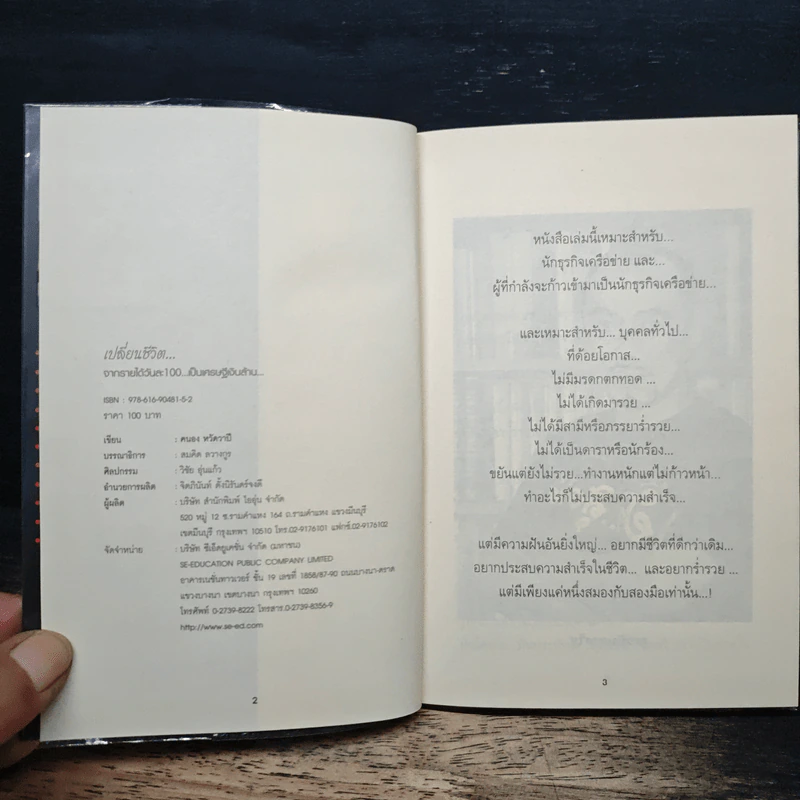 เปลี่ยนชีวิต...
จากรายได้วันละ100...เป็นเศรษฐีเงินล้าน...
ISBN : 978-616-90481-5-2
ราคา 100 บาท
เขียน : คนอง หวัดวาปี
บรรณาธิการ : สมคิด ลวางกูร
ศิลปกรรม : วิชัย อุ่นแก้ว
อำนวยการผลิต : จิตภินันท์ ตั้งนิรันดร์จงดี
ผู้ผลิต : บริษัท สำนักพิมพ์ ไออุ่น จำกัด
520 หมู่ 12 ซ.รามคำแหง 164 ถ.รามคำแหง แขวงมีนบุรี
เขตมีนบุรี กรุงเทพฯ 10510 โทร.02-9176101 แฟกซ์.02-9176102
จัดจำหน่าย : บริษัท ซีเอ็ดยูเคชั่น จำกัด (มหาชน)
SE-EDUCATION PUBLIC COMPANY LIMITED
อาคารเนชั่นทาวเวอร์ ชั้น 19 เลขที่ 1858/87-90 ถนนบางนา-ตราด
แขวงบางนา เขตบางนา กรุงเทพฯ 10260
โทรศัพท์ 0-2739-8222 โทรสาร.0-2739-8356-9
http://www.se-ed.com
2
หนังสือเล่มนี้เหมาะสำหรับ...
นักธุรกิจเครือข่าย และ...
ผู้ที่กำลังจะก้าวเข้ามาเป็นนักธุรกิจเครือข่าย...
และเหมาะสำหรับ... บุคคลทั่วไป...
ที่ด้อยโอกาส...
ไม่มีมรดกตกทอด ...
ไม่ได้เกิดมารวย ...
ไม่ได้มีสามีหรือภรรยาร่ำรวย...
ไม่ได้เป็นดาราหรือนักร้อง...
ขยันแต่ยังไม่รวย...ทำงานหนักแต่ไม่ก้าวหน้า...
ทำอะไรก็ไม่ประสบความสำเร็จ...
แต่มีความฝันอันยิ่งใหญ่... อยากมีชีวิตที่ดีกว่าเดิม...
อยากประสบความสำเร็จในชีวิต... และอยากร่ำรวย ...
แต่มีเพียงแค่หนึ่งสมองกับสองมือเท่านั้น...!
3